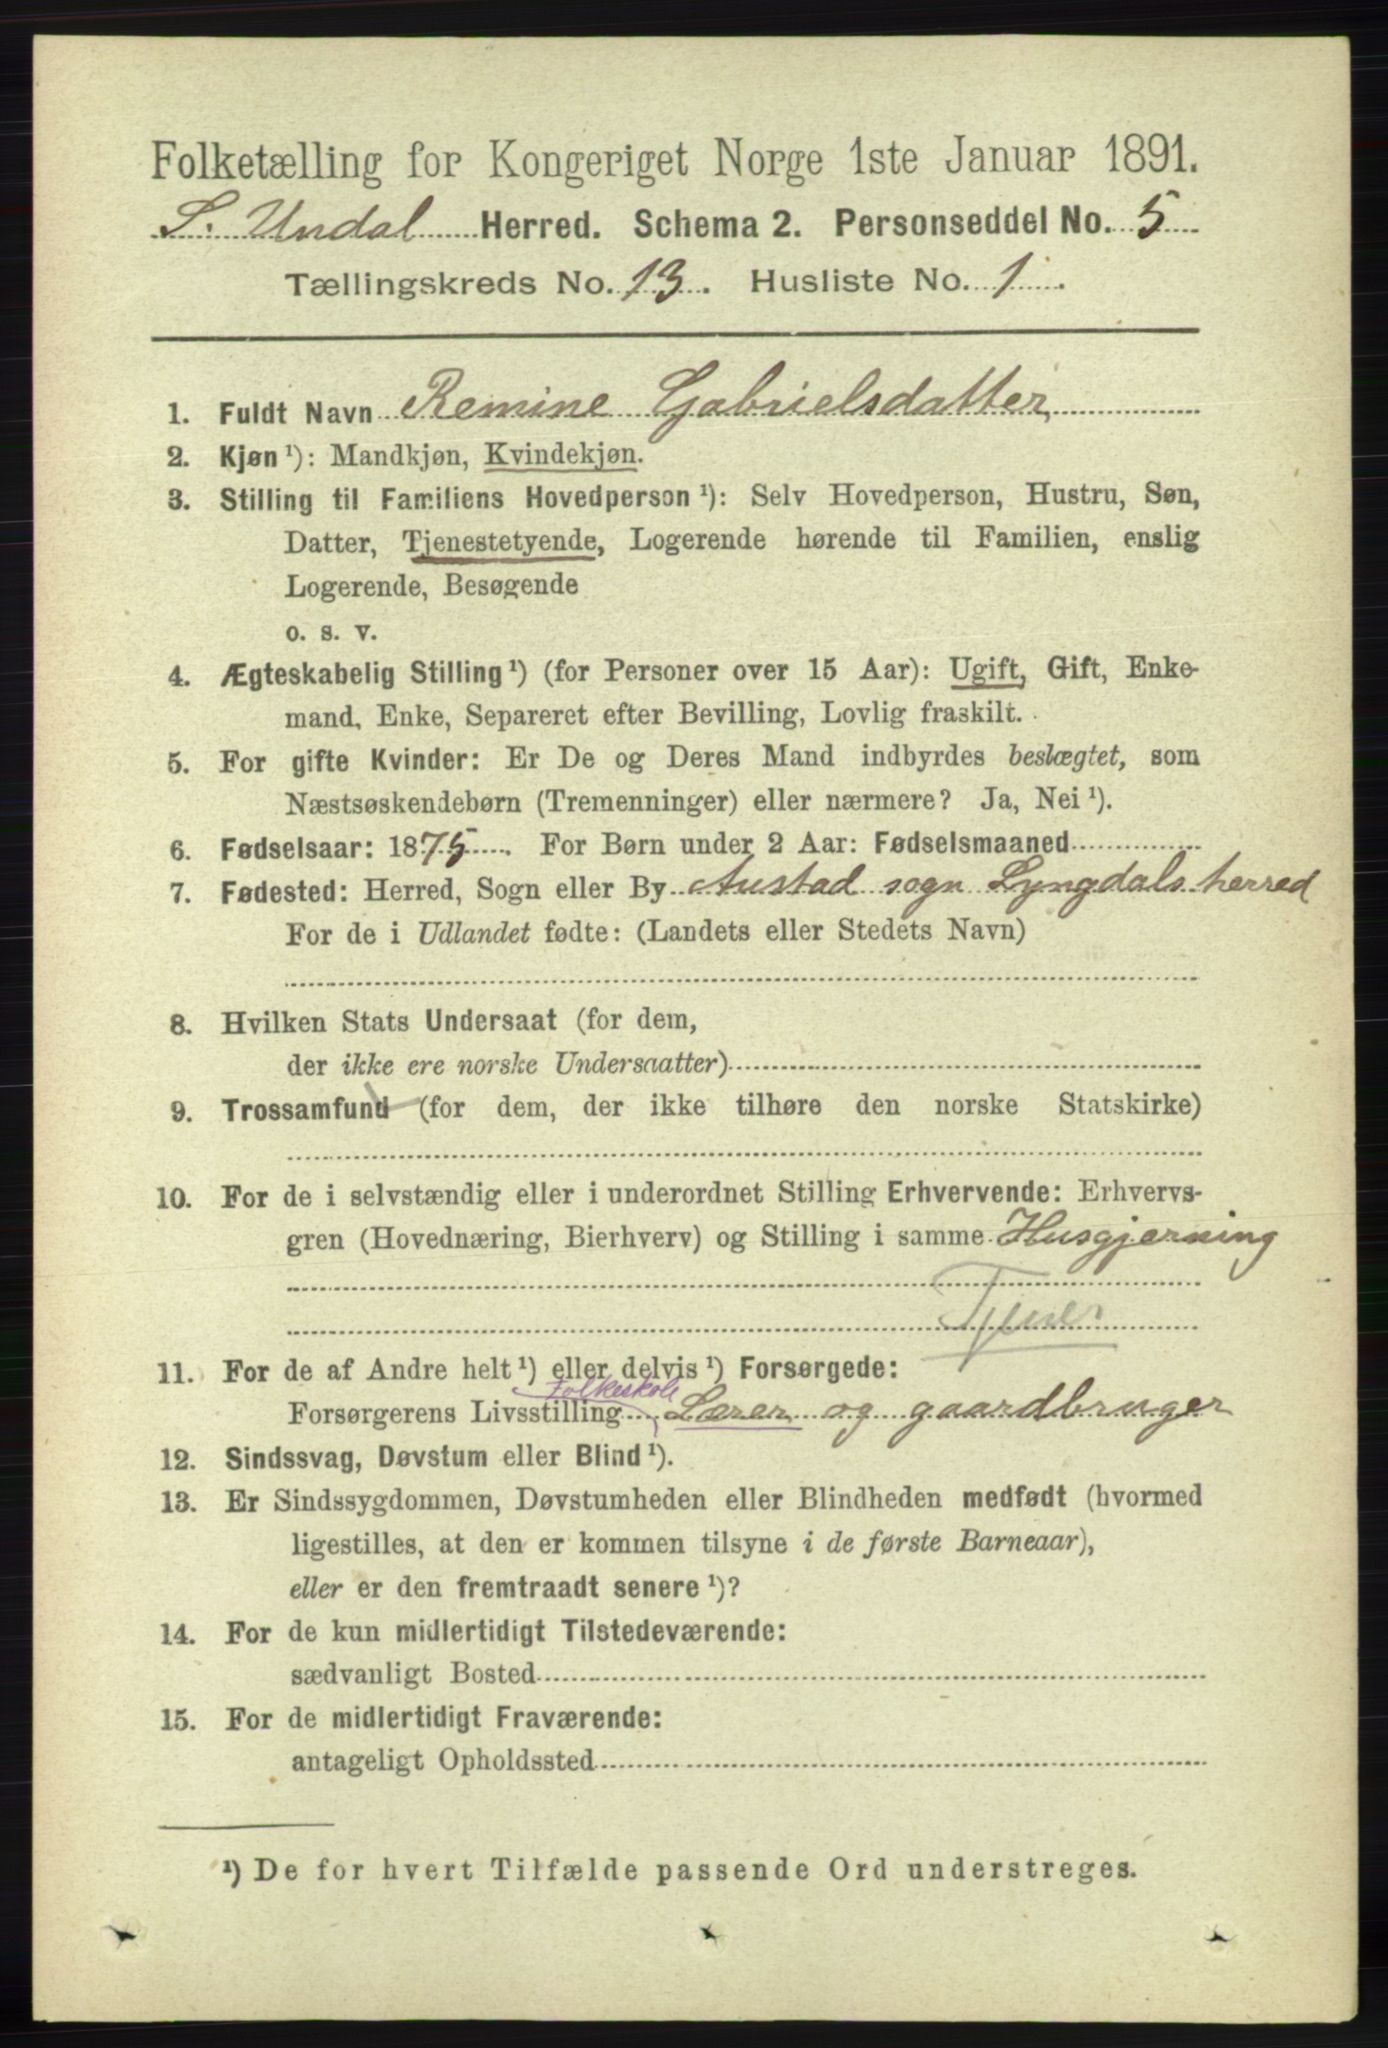 Folketælling for Kongeriget Norge 1ste Januar 1891.
S. Undal Herred. Schema 2. Personseddel No. 5
Tællingskreds No. 13. Husliste No. 1.
1. Fuldt Navn Remine Gabrielsdatter
2. Kjøn ¹): Mandkjøn, Kvindekjøn.
3. Stilling til Familiens Hovedperson ¹): Selv Hovedperson, Hustru, Søn,
Datter, Tjenestetyende, Logerende hørende til Familien, enslig
Logerende, Besøgende
o. s. v.
4. Ægteskabelig Stilling ¹) (for Personer over 15 Aar): Ugift, Gift, Enke-
mand, Enke, Separeret efter Bevilling, Lovlig fraskilt.
5. For gifte Kvinder: Er De og Deres Mand indbyrdes beslægtet, som
Næstsøskendebørn (Tremenninger) eller nærmere? Ja, Nei ¹).
6. Fødselsaar: 1875. For Børn under 2 Aar: Fødselsmaaned
7. Fødested: Herred, Sogn eller By Austad sogn Lyngdals herred
For de i Udlandet fødte: (Landets eller Stedets Navn)
8. Hvilken Stats Undersaat (for dem,
der ikke ere norske Undersaatter)
9. Trossamfund (for dem, der ikke tilhøre den norske Statskirke)
10. For de i selvstændig eller i underordnet Stilling Erhvervende: Erhvervs-
gren (Hovednæring, Bierhverv) og Stilling i samme Husgjerning
11. For de af Andre helt ¹) eller delvis ¹) Forsørgede:
Folkeskole
Forsørgerens Livsstilling Lærer og gaardbruger
12. Sindssvag, Døvstum eller Blind ¹).
13. Er Sindssygdommen, Døvstumheden eller Blindheden medfødt (hvormed
ligestilles, at den er kommen tilsyne i de første Barneaar),
eller er den fremtraadt senere ¹)?
14. For de kun midlertidigt Tilstedeværende:
sædvanligt Bosted
15. For de midlertidigt Fraværende:
antageligt Opholdssted
¹) De for hvert Tilfælde passende Ord understreges.